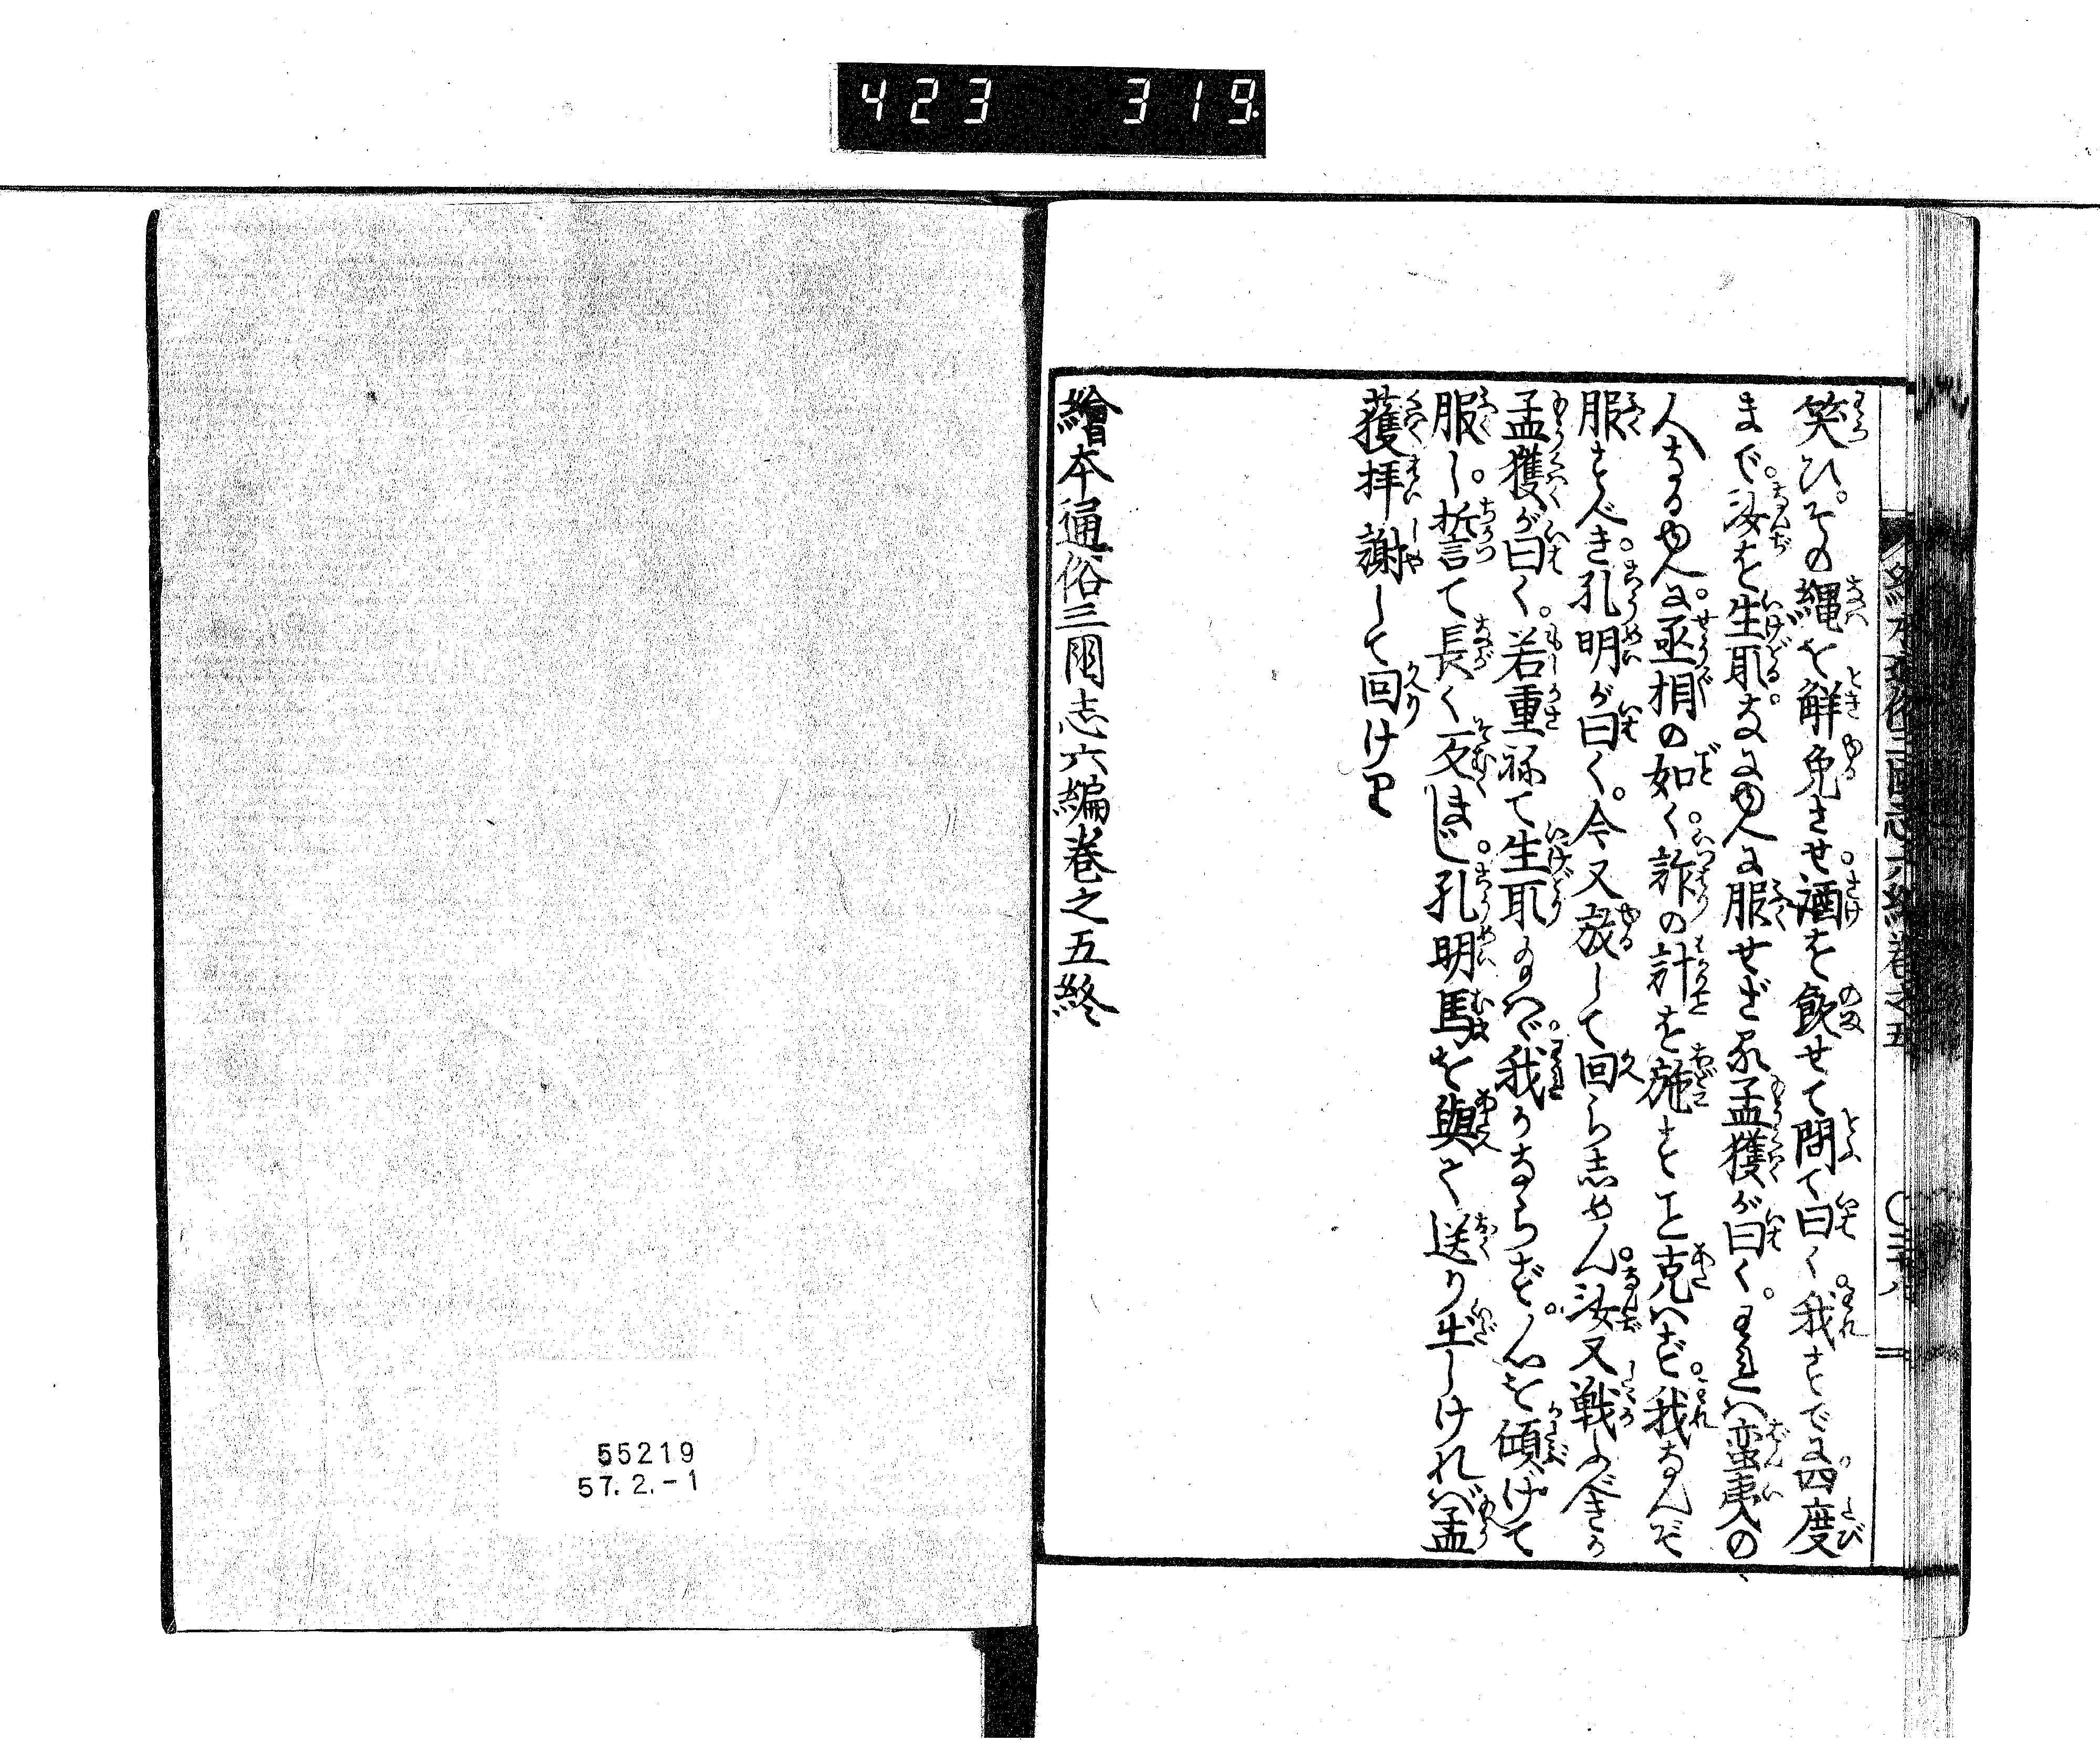 423 319
繪本通俗三國志六編巻之五
笑ひ。その縄を觧免させ。酒を飲せて問て曰く。我すでに四度
まで。汝を生取る。なに由へに服せざる孟獲が曰く。われハ蛮夷人の
人なるゆへに。丞相の如く。詐の計を施すこと克ハず。我なんぞ
服すべき。孔明が曰く。今又放して回らしめん。汝又戦ふべきか
孟獲が曰く。若重ねて生取るゝハゞ。我かならず。心を傾けて
服し。誓て長く反くまじ。孔明馬を與て送り出しけれバ孟
獲拝謝して回けり
繪本通俗三國志六編巻之五終
55219
57.2.-1